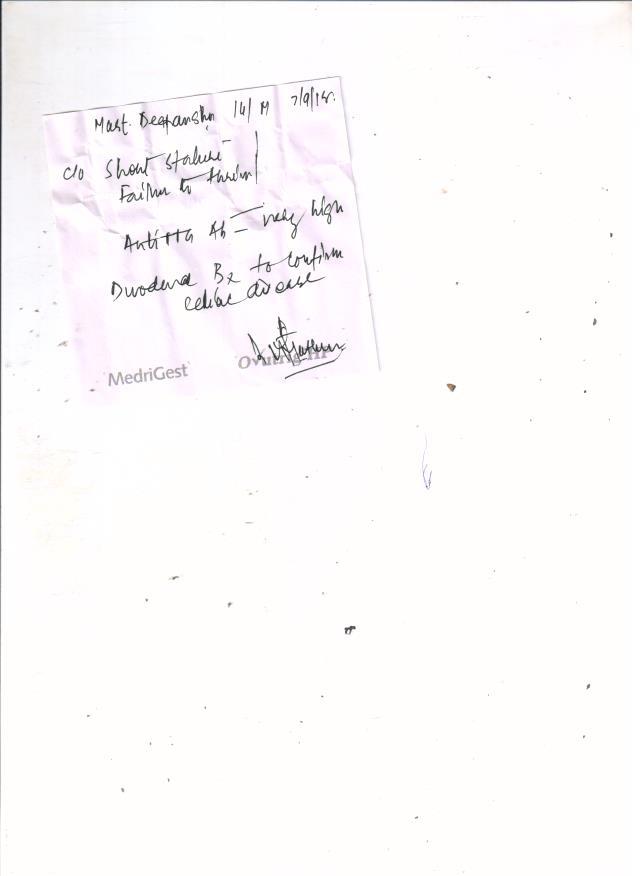 Mast. Deepanshu 14/M 7/9/15.
c/o Short stature
Failure to thrive
Anti tTG Ab – very high
Duodenal Bx to confirm
celiac disease
MedriGest